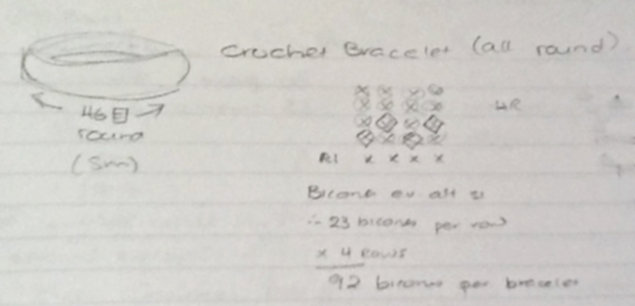 Crochet Bracelet (all round)
46
round
(5mm)
4R
R1 x x x x
Bicone ev alt st
∴ 23 bicones per row
x 4 Rows
92 bicones per bracelet